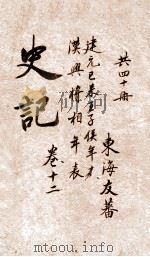 共四十冊
東海友蕃
建元已來王子侯年表
漢興將相年表
史記
卷十二
mtoou.info(dmtoou.com)